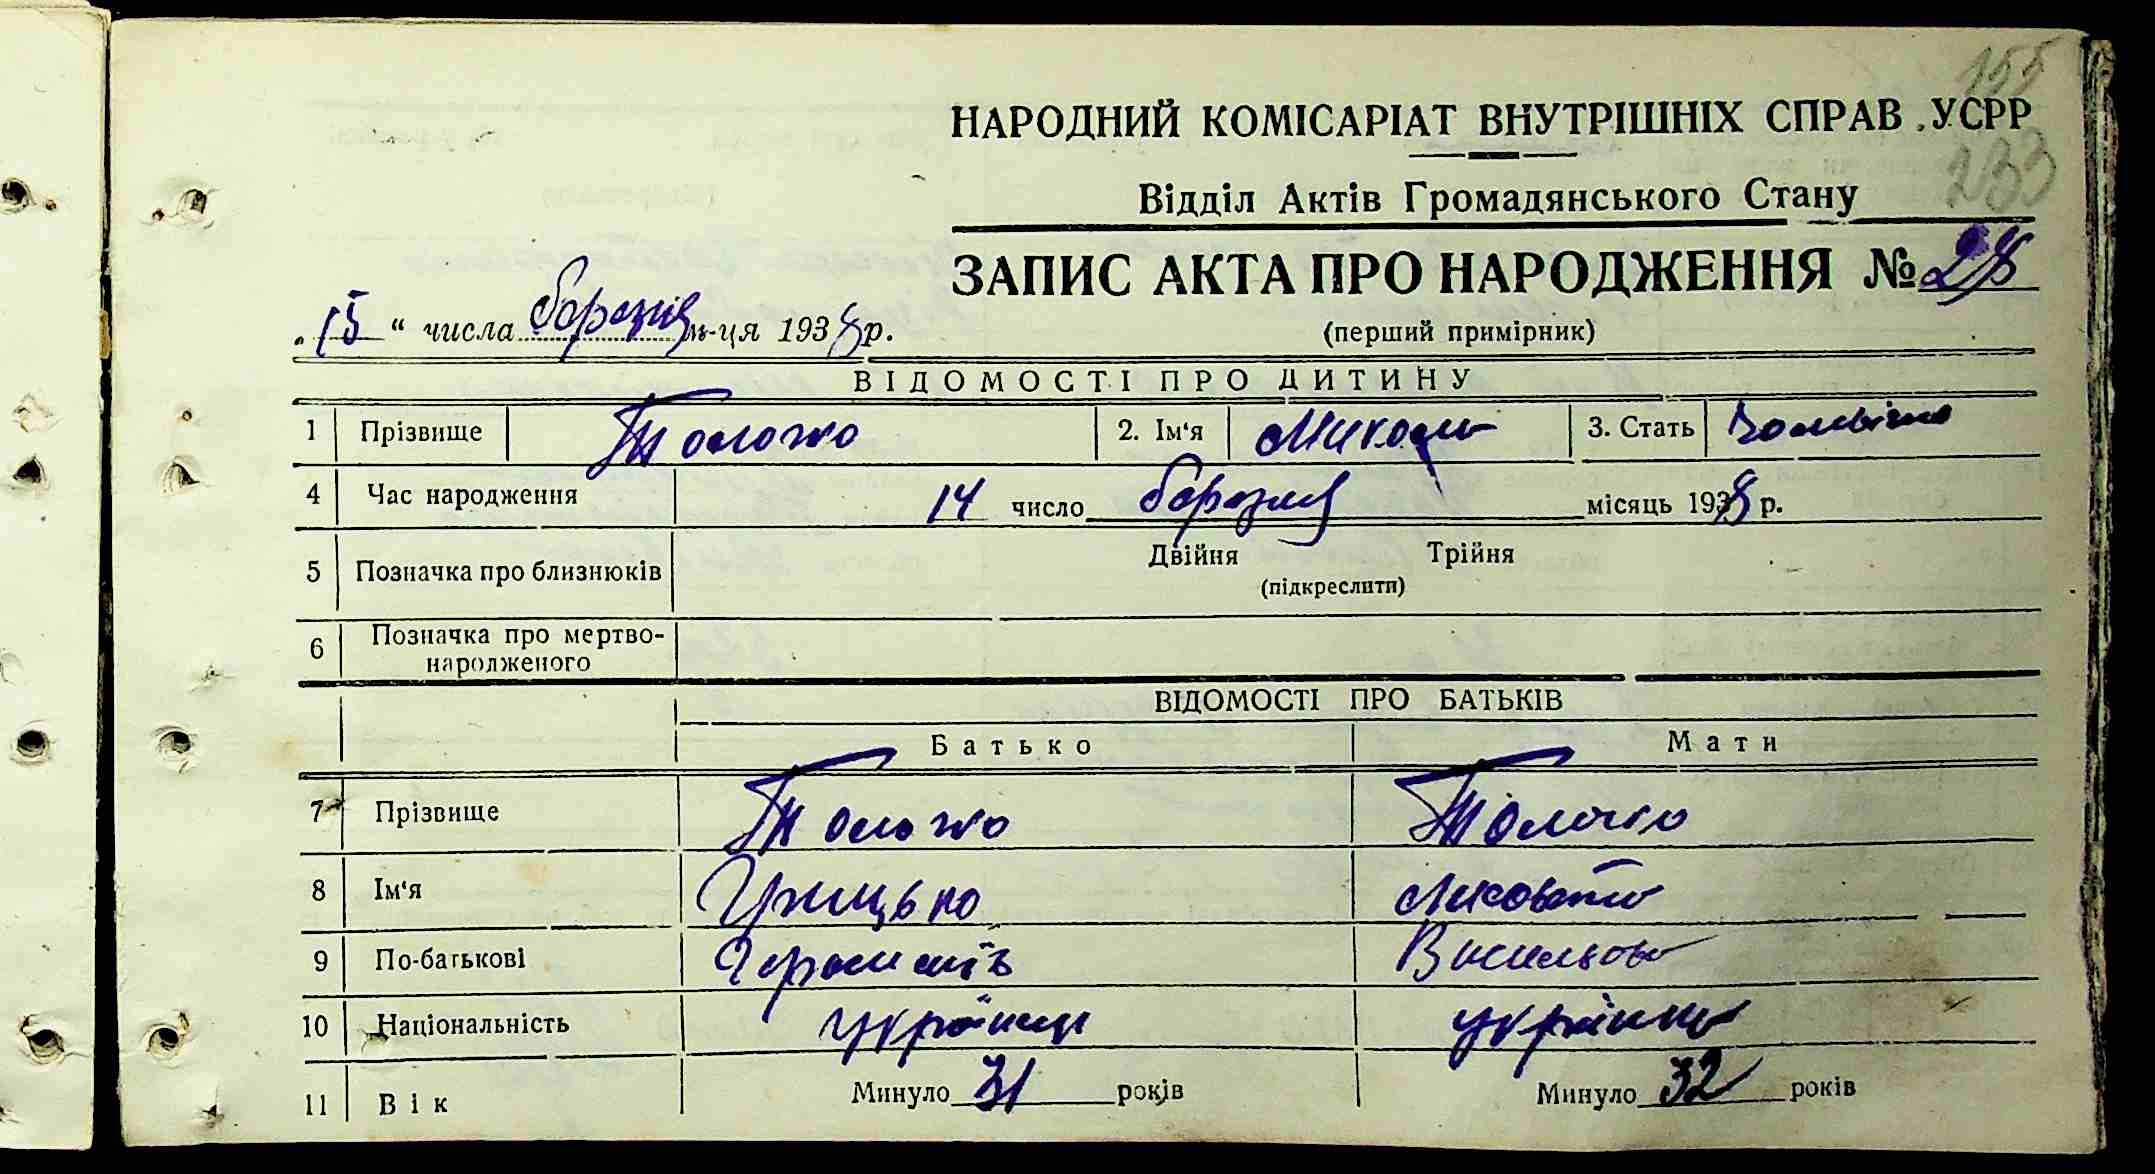 155
НАРОДНИЙ КОМІСАРІАТ ВНУТРІШНІХ СПРАВ УСРР
233
Відділ Актів Громадянського Стану
ЗАПИС АКТА ПРО НАРОДЖЕННЯ № 28
„15“ числа березня м-ця 1938 р.
(перший примірник)
ВІДОМОСТІ ПРО ДИТИНУ
1 Прізвище Толочко 2. Ім'я Микола 3. Стать
4 Час народження 14 число березня місяць 1938 р.
5 Позначка про близнюків Двійня Трійня
(підкреслити)
6 Позначка про мертво-
народженого
ВІДОМОСТІ ПРО БАТЬКІВ
Батько Мати
7 Прізвище Толочко Толочко
8 Ім'я Грицько Лисавета
9 По-батькові Васильова
10 Національність українець українка
11 Вік Минуло 31 років Минуло 32 років